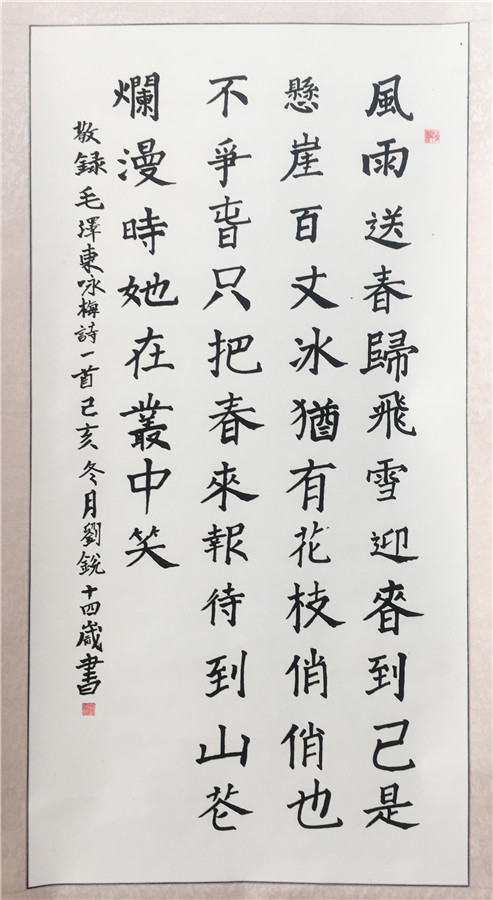 風雨送春歸飛雪迎春到己是
懸崖百丈冰猶有花枝俏俏也
不爭旾只把春來報待到山芲
爛漫時她在叢中笑
敬録毛澤東咏梅詩一首己亥冬月劉銳十四歲書